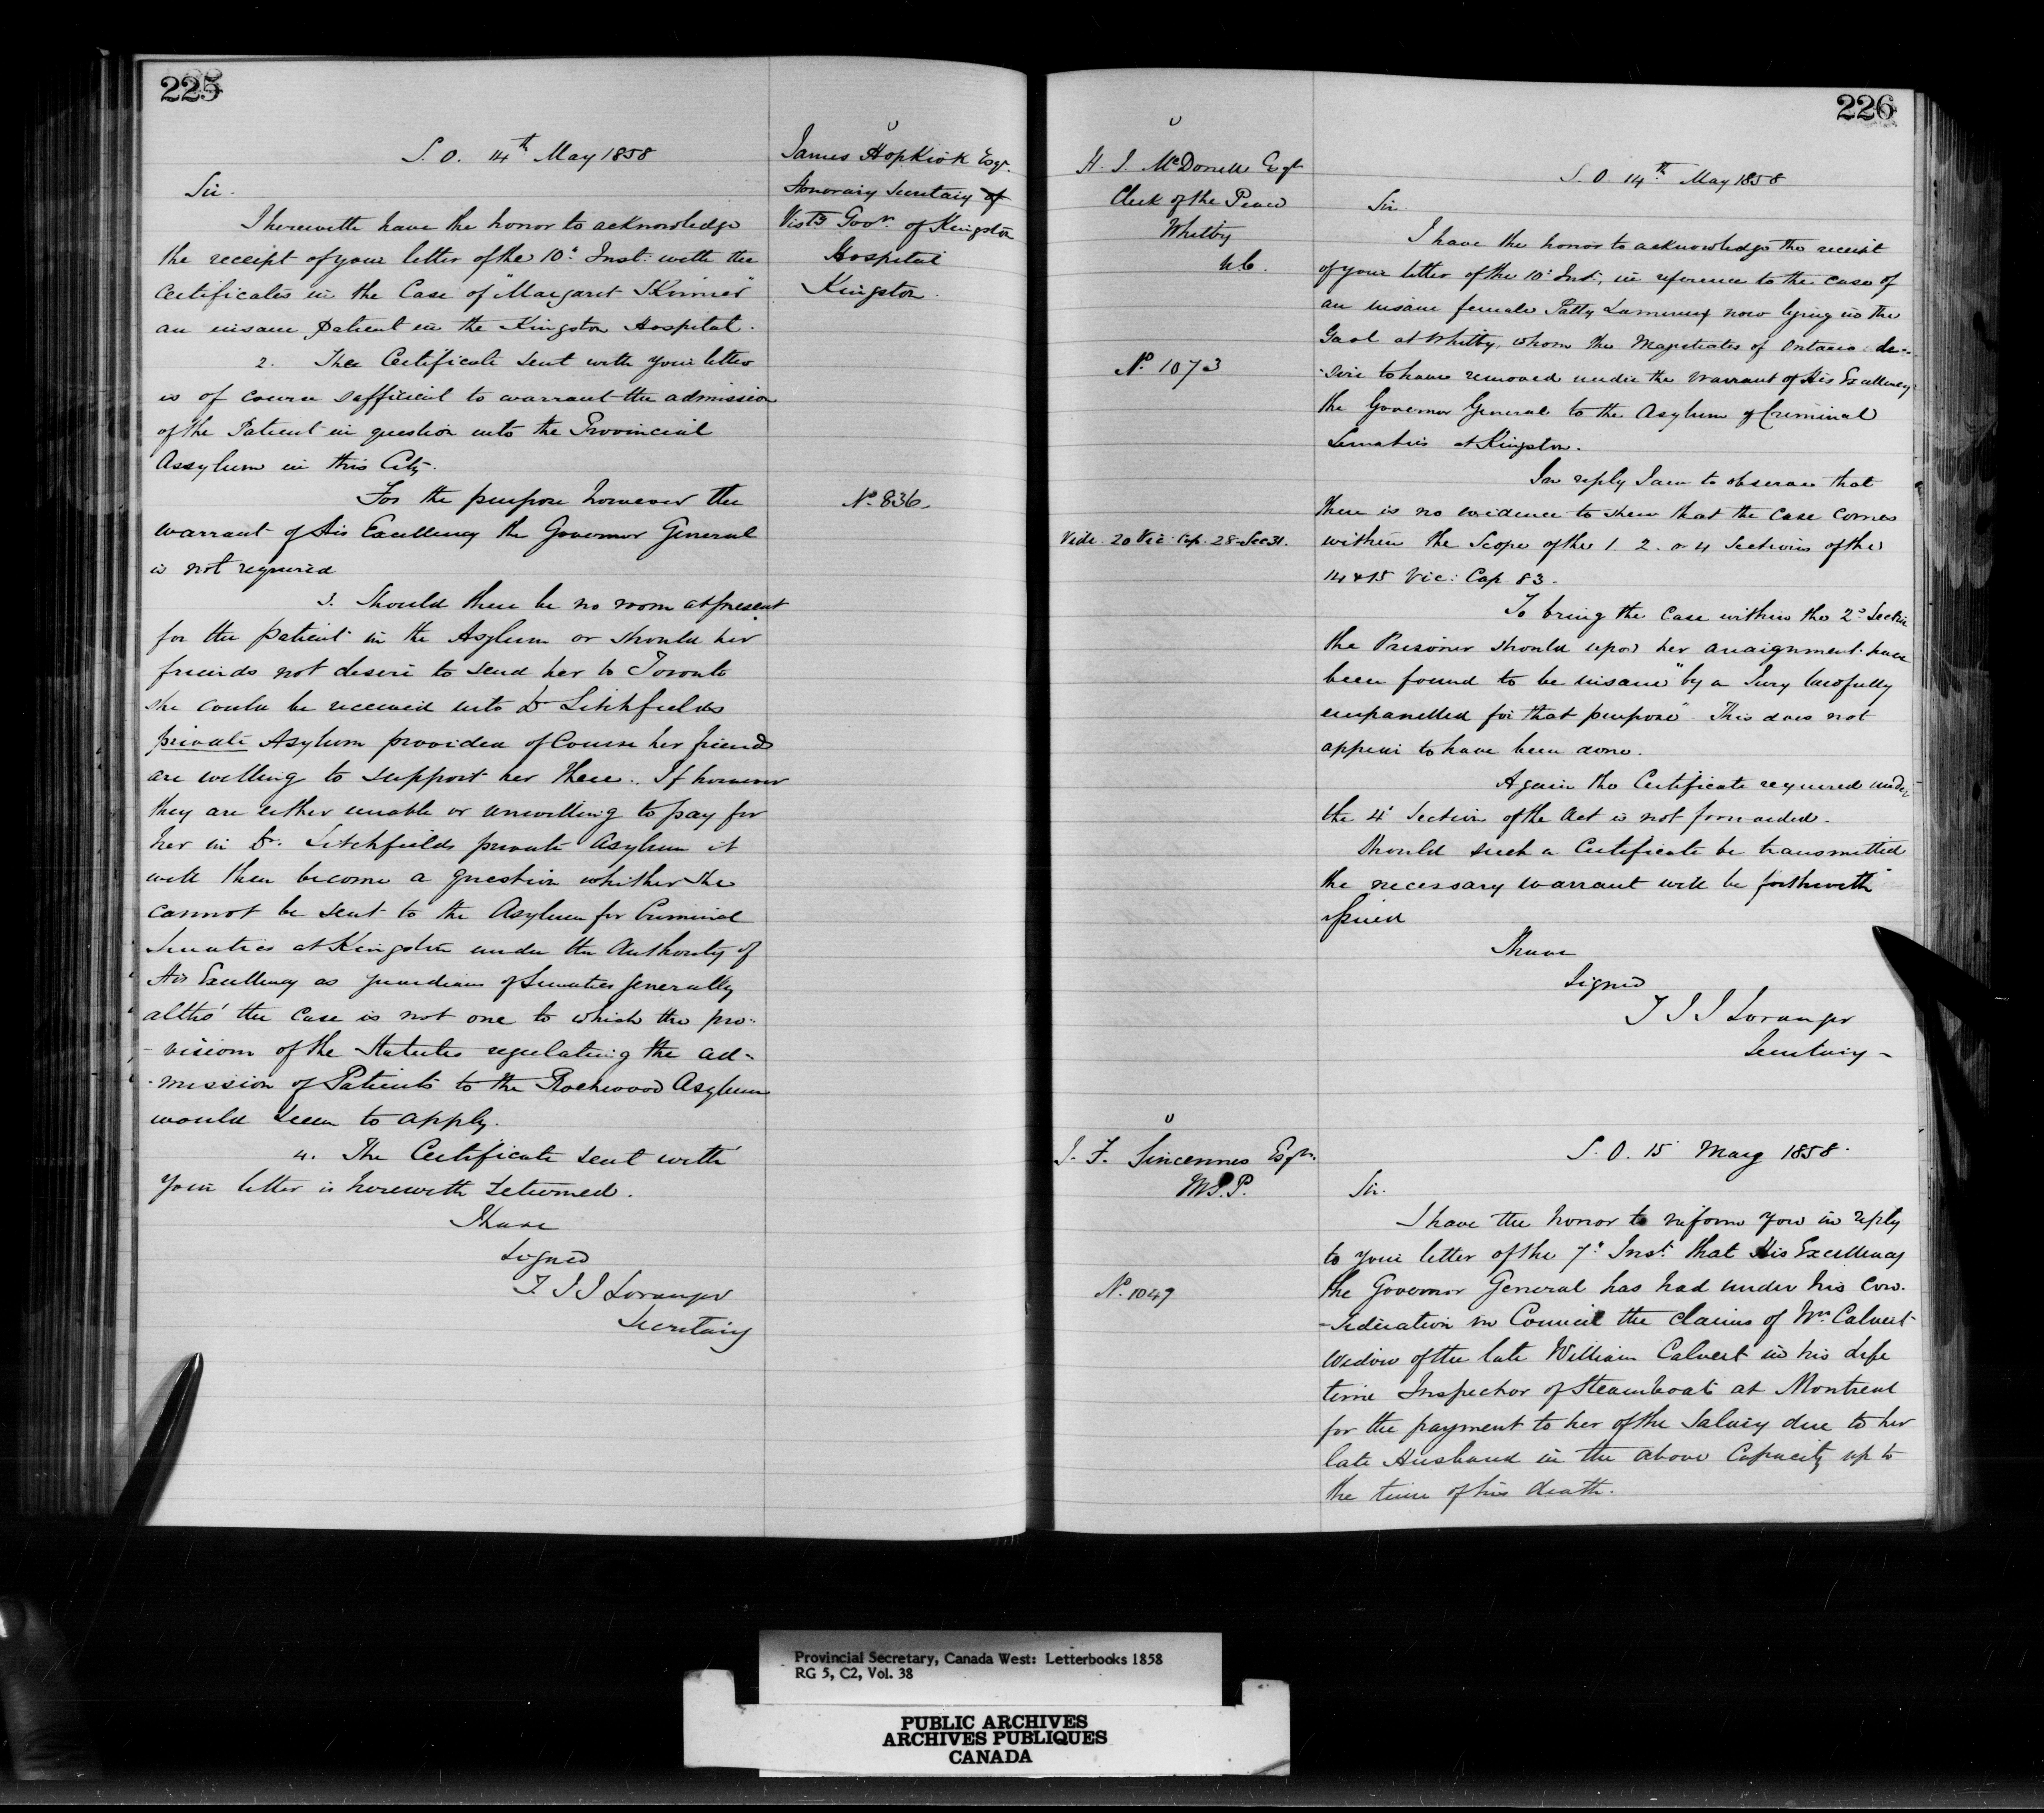 225
S. O. 14th May 1858
James Hopkirk Esqr.
Honorary Secretary of
Vistg Govr. of Kingston
Hospital
Kingston.
Sir.
I herewith have the honor to acknowledge
the receipt of your letter of the 10th Inst: with the
Certificates in the Case of "Margaret Skinner"
an insane patient in the Kingston Hospital.
2. The Certificate sent with your letter
is of course sufficient to warrant the admission
of the Patient in question into the Provincial
Assylum in this City.
No. 836.
For the purpose however the
warrant of His Excellency the Governor General
is not required
3. Should there be no room at present
for the patient in the Asylum or should her
friends not desire to send her to Toronto
she could be received into Dr Litchfields
private Asylum provided of Course her friends
are willing to support her there. If however
they are either unable or unwilling to pay for
her in Dr. Litchfields private Asylum it
will then become a question whether she
cannot be sent to the Asylum for Criminal
Lunatics at Kingston under the Authority of
His Excellency as guardian of Lunatics generally
altho' the case is not one to which the pro-
-visions of the Statutes regulating the ad-
-mission of Patients to the Rockwood Asylum
would seem to apply.
4. The Certificate sent with
your letter is herewith returned.
I have
Signed
T. J J Loranger
Secretary
226
H. J. McDonell Esqr
Clerk of the Peace
Whitby
U.C.
No. 1073
Vide 20 Vic: Cap. 28 Sec 31.
S. O. 14th May 1858
Sir
I have the honor to acknowledge the receipt
of your letter of the 10th Inst, in reference to the case of
an insane female Patty now lying in the
Gaol at Whitby, whom the Magistrates of Ontario de-
-sire to have removed under the warrant of His Excellency
the Governor General to the Asylum of Criminal
Lunatics at Kingston.
In reply I am to observe that
there is no evidence to shew that the case comes
within the Scope of the 1. 2. or 4 Sections of the
14 & 15 Vic: Cap 83.
To bring the Case within the 2d Section
the Prisoner should upon her arraignment have
been found to be insane "by a Jury lawfully
empanelled for that purpose". This does not
appear to have been done.
Again the Certificate required under
the 4th Section of the Act is not forwarded.
Should such a Certificate be transmitted
the necessary warrant will be forthwith
issued
I have
Signed
T J J Loranger
Secretary -
J. F. Sincennes Esqr.
M.P.P.
No. 1049
S. O. 15 May 1858.
Sir.
I have the honor to inform you in reply
to your letter of the 7th Inst. that His Excellency
the Governor General has had under his con-
-sideration in Council the claims of Mrs. Calvert
Widow of the late William Calvert in his life
time Inspector of Steamboats at Montreal
for the payment to her of the Salary due to her
late Husband in the above Capacity up to
the time of his death.
Provincial Secretary, Canada West: Letterbooks 1858
RG 5, C2, Vol. 38
PUBLIC ARCHIVES
ARCHIVES PUBLIQUES
CANADA